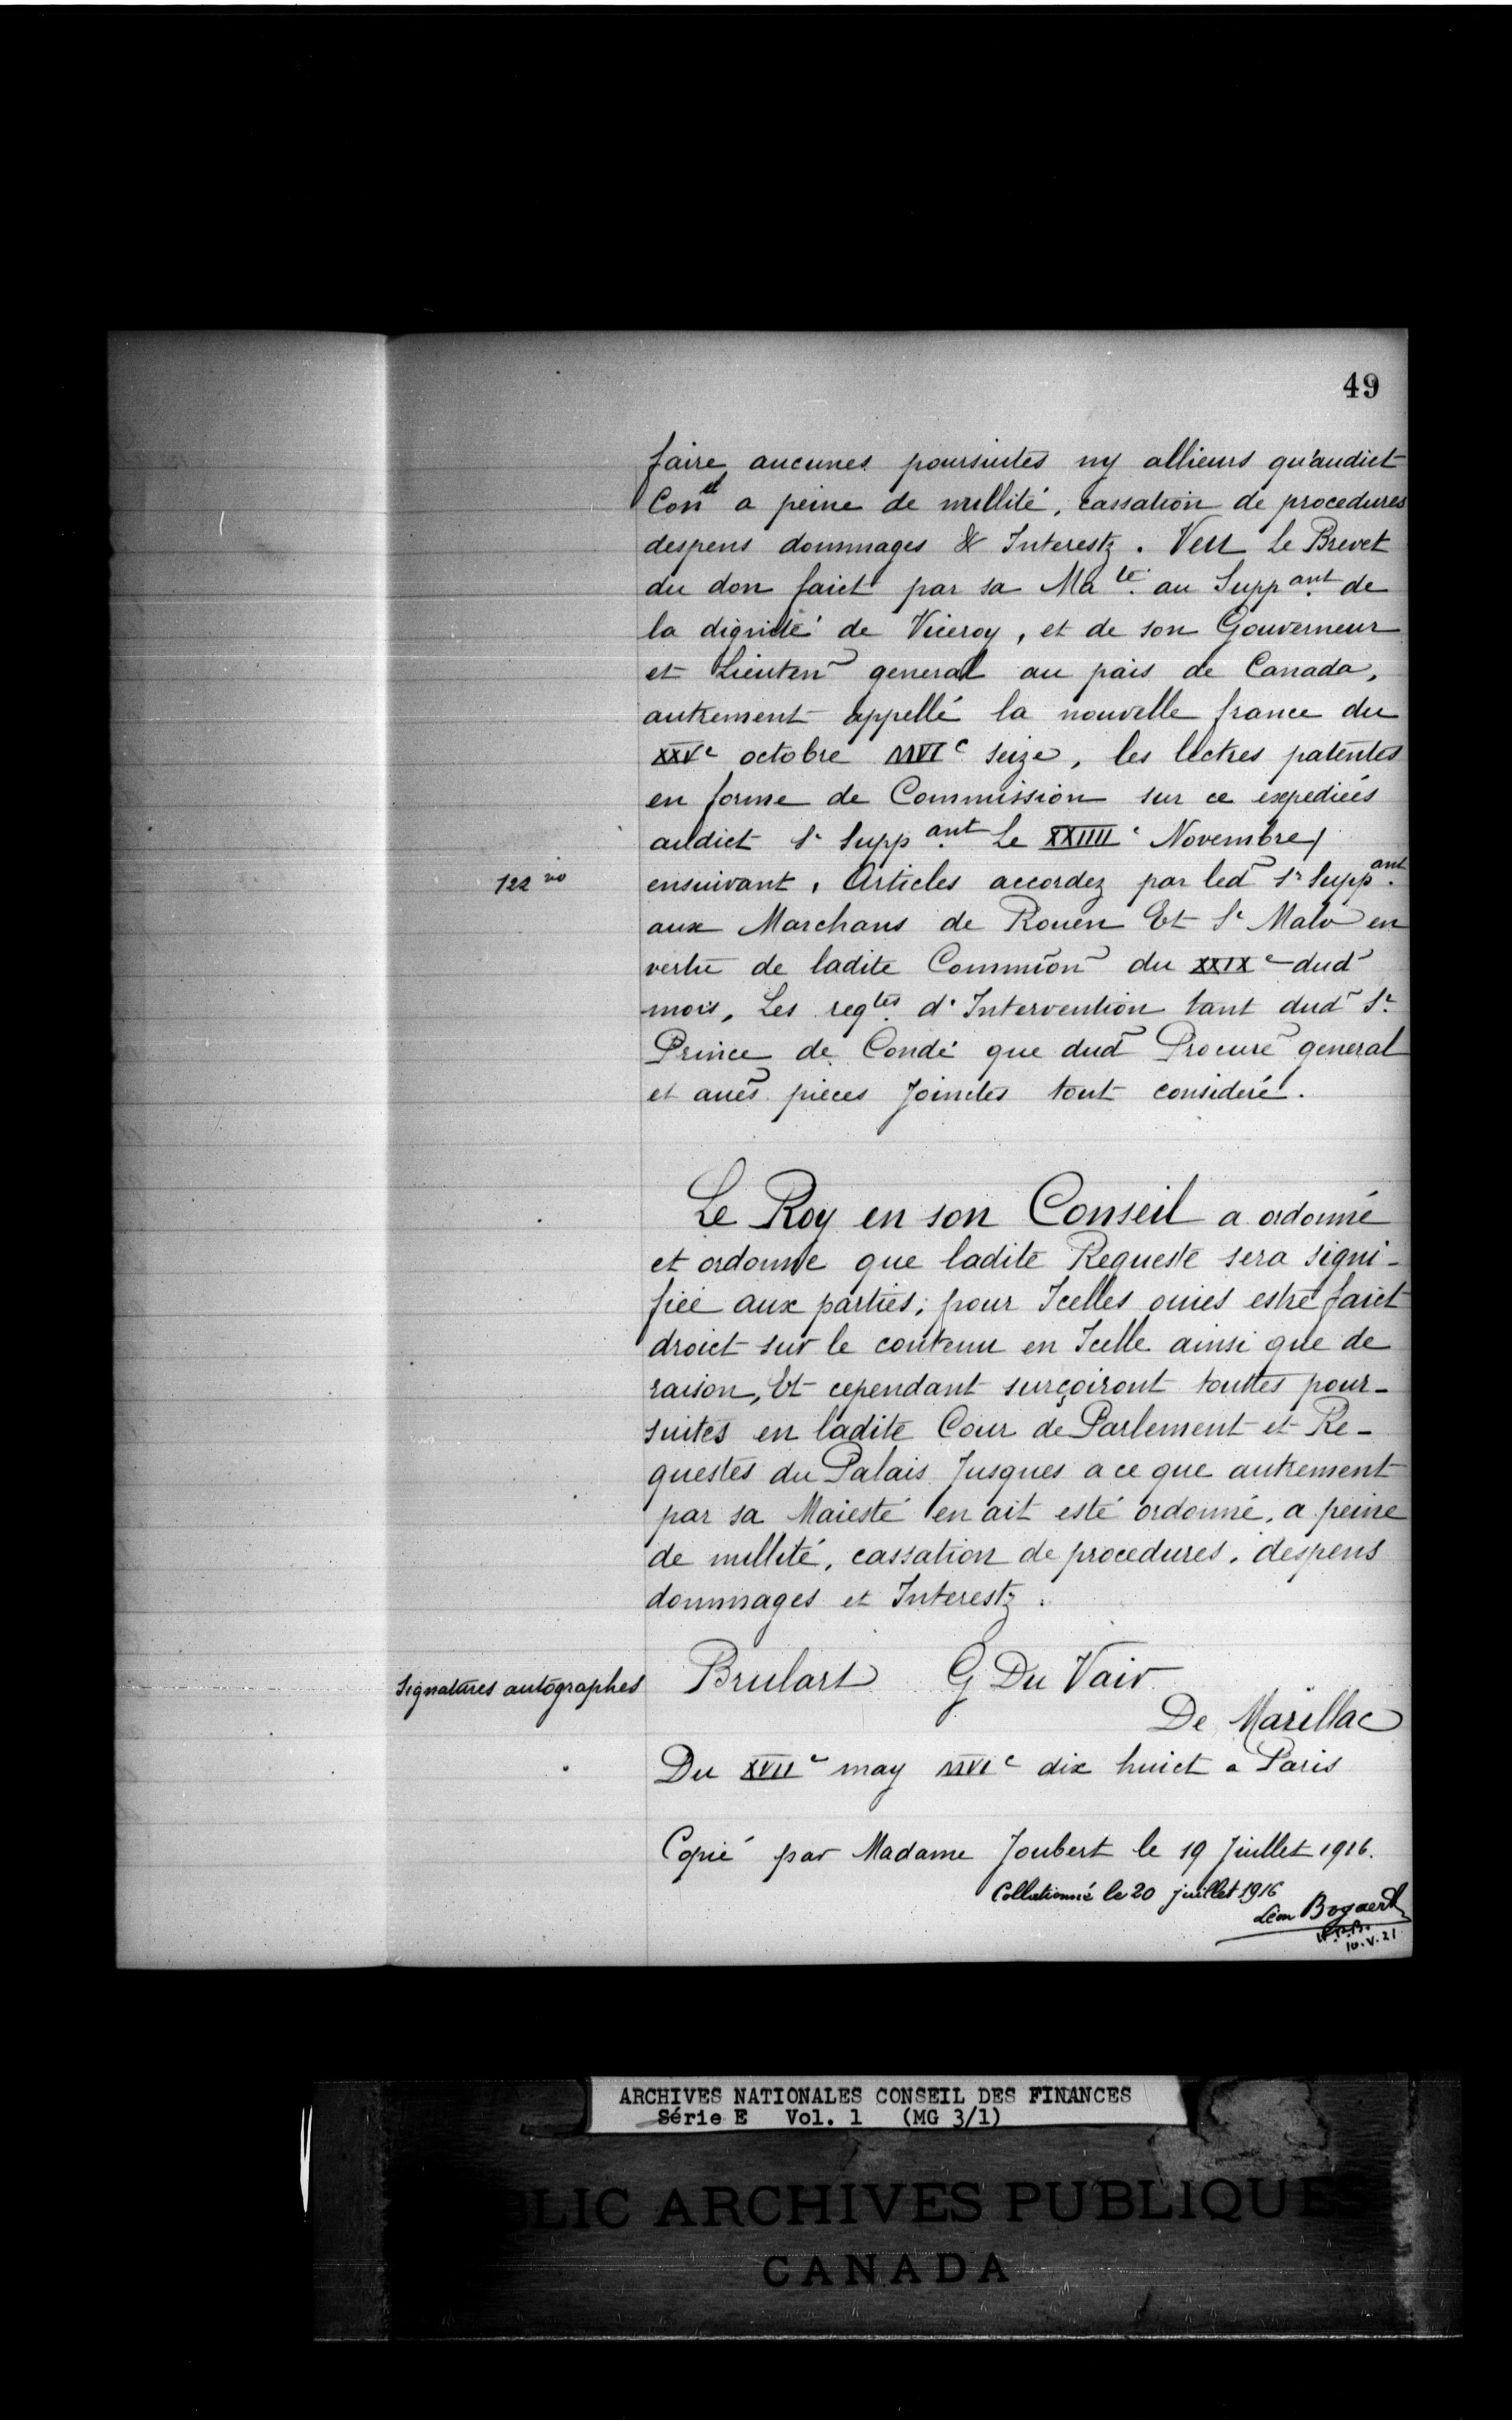 49
faire aucunes poursuites ny allieurs qu'audict
Con^el a peine de nullité, cassation de procedures
despens dommages & Interestz. Veu Le Brevet
du don faict par sa Ma^té. au Supp^ant. de
la dignité de Viceroy, et de son Gouverneur
et Lieuten~ general au païs de Canada,
autrement appellé la nouvelle france du
XXV^e octobre MVI^c seize, les lectres patentes
en forme de Commission sur ce expediées
audict S^r Supp^ant. Le XXIIII^e Novembre
122 vo
ensuivant, Articles accordez par led~ S^r Supp^ant.
aux Marchans de Rouen Et S^t Malo en
vertu de ladite Commion~ du XXIX^e dud~
mois, Les reqtes. d'Intervention tant dud~ S^r
Prince de Condé que dud~ Procure~ general
et aues~ pieces Joinctes tout consideré.
Le Roy en son Conseil a ordonné
et ordonne que ladite Requeste sera signi-
fiée aux parties, pour Icelles ouies estre faict
droict sur le contenu en Icelle ainsi que de
raison, Et cependant surçoiront touttes pour-
suites en ladite Cour de Parlement et Re-
questes du Palais Jusques a ce que autrement
par sa Maiesté en ait esté ordonné, a peine
de nullité, cassation de procedures, despens
dommages et Interestz.
Signatures autographes
Brulart G Du Vair
De Marillac
Du XVII^e may MVI^c dix huict a Paris
Copié par Madame Joubert le 19 Juillet 1916.
Collationné le 20 juillet 1916
Léon Bogaert
10.V.21
ARCHIVES NATIONALES CONSEIL DES FINANCES
Série E Vol. 1 (MG 3/1)
BLIC ARCHIVES PUBLIQUES
CANADA